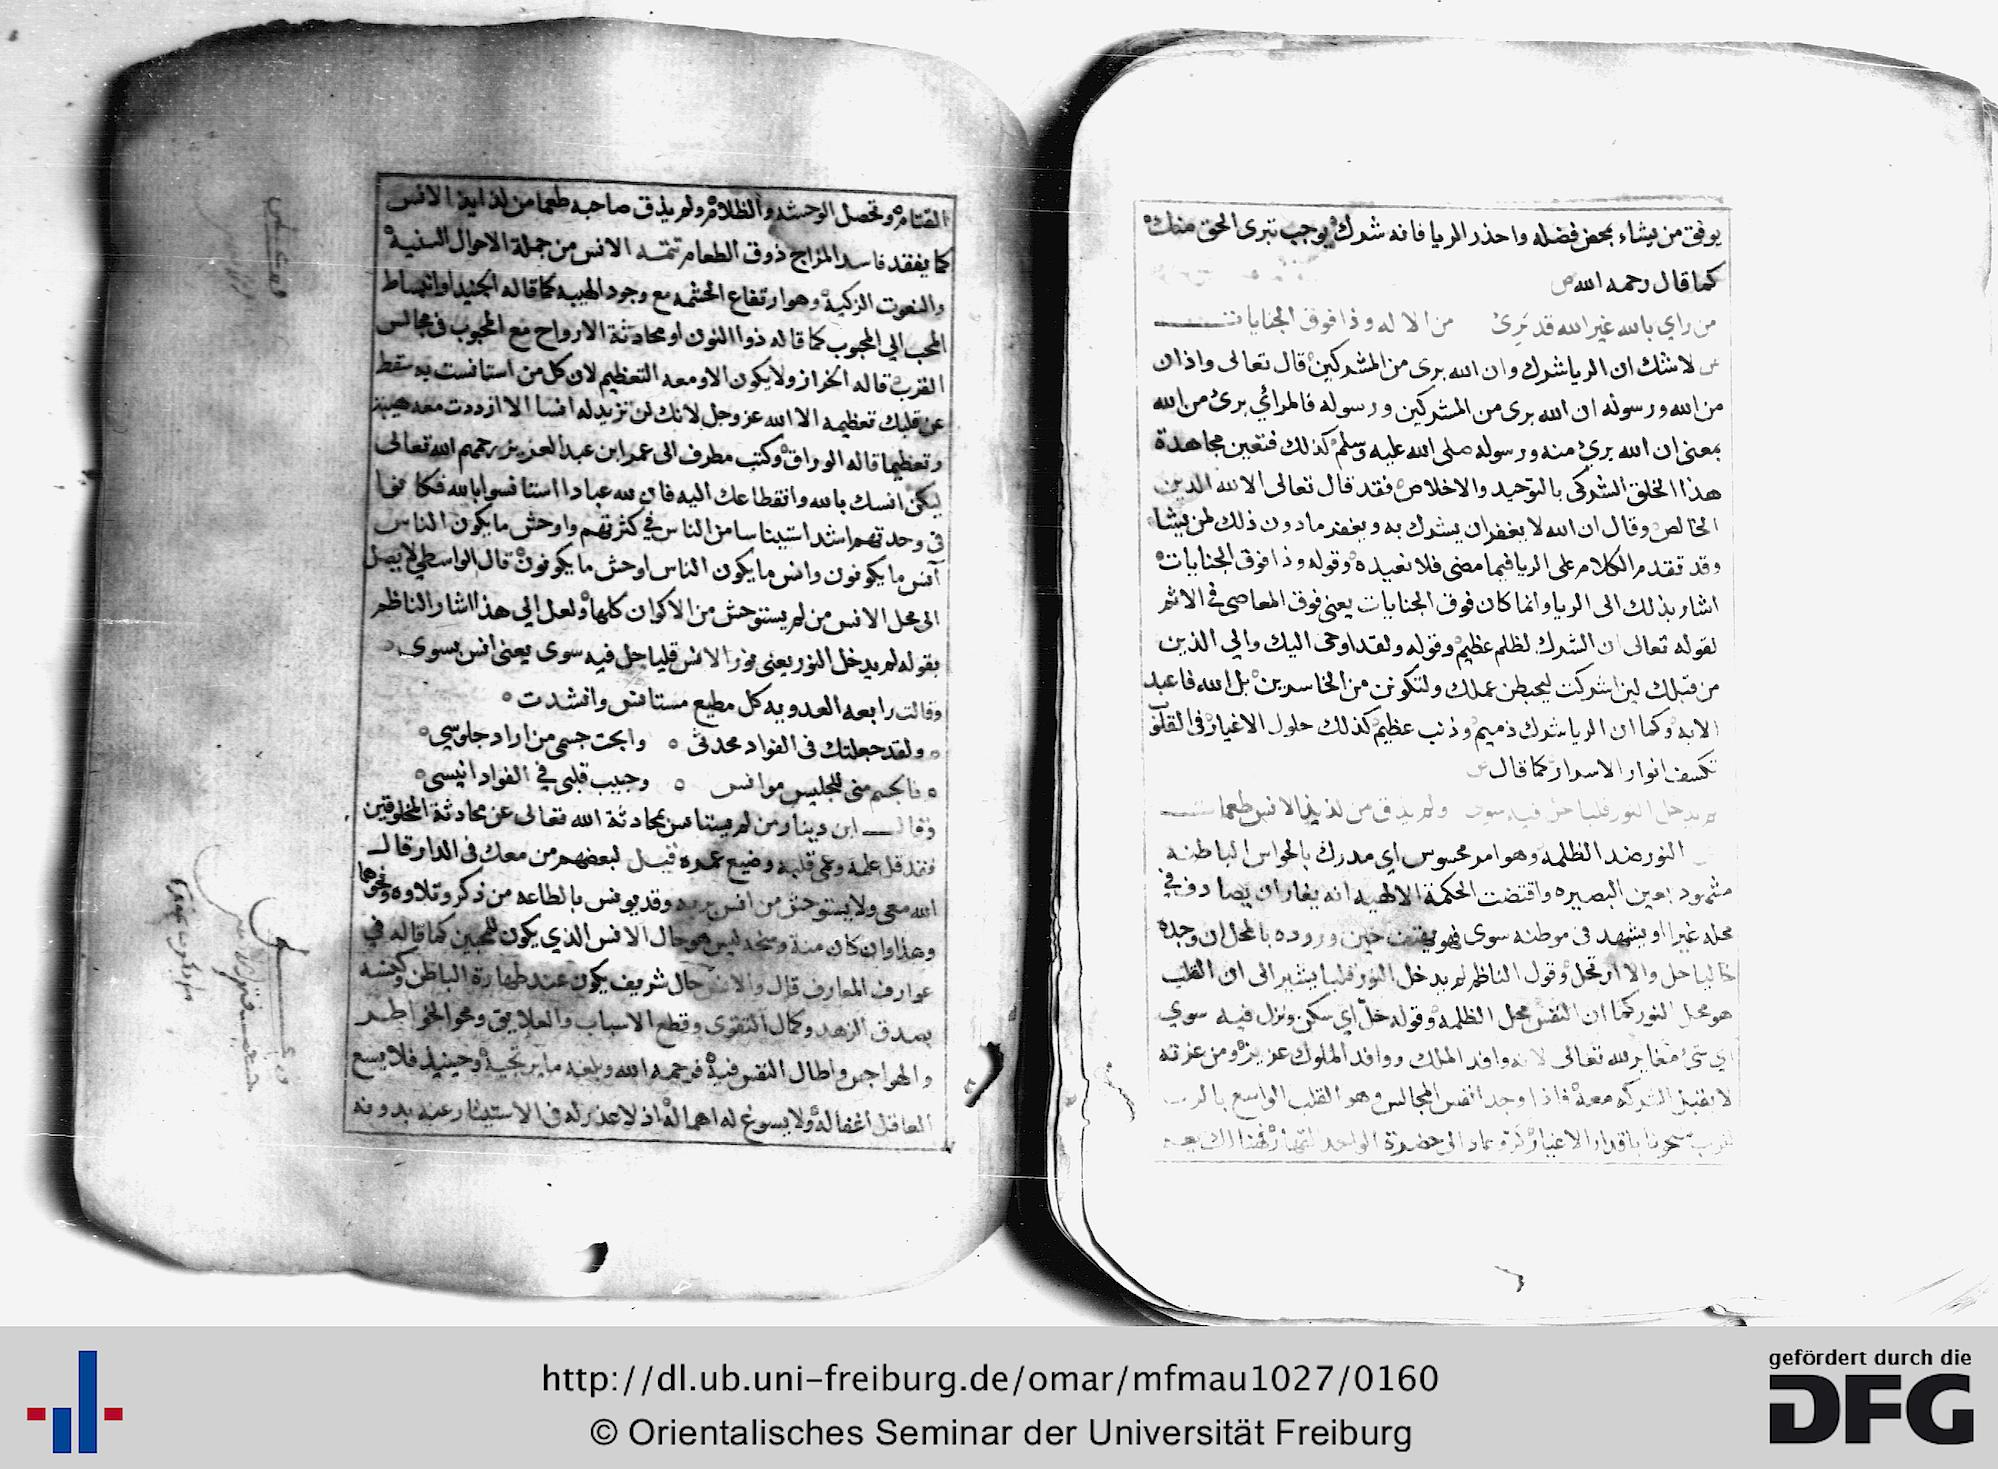 يوفق من يشاء بمحض فضله واحذر الريا فانه شرك يوجب تبرى الحق منك
كما قال رحمه الله ص
من راي بالله غير الله قد برئ من الاله وذا فوق الجنايات
ش لاشك ان الريا شرك وان الله برى من المشركين قال تعالى واذان
من الله ورسوله ان الله برى من المشركين ورسوله فالمرائي برئ من الله
بمعنى ان الله برئ منه ورسوله صلى الله عليه وسلم كذلك فتعين مجاهدة
هذا الخلق الشركى بالتوحيد والاخلاص فقد قال تعالى الا لله الدين
الخالص وقال ان الله لا يغفر ان يشرك به ويغفر مادون ذلك لمن يشا
وقد تقدم الكلام على الريا فيما مضى فلا نعيده وقوله وذا فوق الجنايات
اشار بذلك الى الريا وانما كان فوق الجنايات يعنى فوق المعاصى في الاثم
لقوله تعالى ان الشرك لظلم عظيم وقوله ولقد اوحى اليك والي الذين
من قبلك لين اشركت ليحبطن عملك ولتكونن من الخاسرين بل الله فاعبد
الايه وكما ان الريا شرك ذميم وذنب عظيم كذلك حلول الاغيار فى القلوب
تكسف انوار الاسرار كما قال ص
لم يدخل النور قلبا حل فيه سوى ولم يذق من لذيذ الانس طعمات
النور ضد الظلمه وهو امر محسوس اي مدرك بالحواس الباطنه
مشهود بعين البصيره واقتضت الحكمة الالهيه انه يغار ان يصادف في
محله غيرا او يشهد فى موطنه سوى فهو يقف حين وروده بالمحل ان وجده
خاليا حل والا ارتحل وقول الناظم لم يدخل النور قلبا يشير الى ان القلب
هو محل النور كما ان النفس محل الظلمه وقوله حل اي سكن ونزل فيه سوي
اي شئ مغاير لله تعالى لانه وافد الملك ووافد الملوك عزيز ومن عزته
لا يقبل الشركه معه فاذا وجد انفس المجالس وهو القلب الواسع بالرب
القريب مشحونا باقدار الاغيار كر وعاد الى حضرة الواحد القهار فهنالك يعم
القتام وتحصل الوحشه والظلام ولم يذق صاحبه طعما من لذايذ الانس
كما يفقد فاسد المزاج ذوق الطعام تتمه الانس من جملة الاحوال السنية
والنعوت الزكية وهو ارتفاع الحشمه مع وجود الهيبه كما قاله الجنيد او انبساط
المحب الي المحبوب كما قاله ذوا النون او محادثة الارواح مع المحبوب فى مجالس
القرب قاله الخراز ولا يكون الا ومعه التعظيم لان كل من استانست به سقط
عن قلبك تعظيمه الا الله عز وجل لانك لن تزيد له انسا الا ازددت معه هيبة
وتعظيما قاله الوراق وكتب مطرف الى عمر ابن عبد العزيز رحمهم الله تعالى
ليكن انسك بالله وانقطاعك اليه فان لله عبادا استانسوا بالله فكانوا
فى وحدتهم اشد استيناسا من الناس في كثرتهم واوحش ما يكون الناس
آنس ما يكونون وانس ما يكون الناس اوحش ما يكونون قال الواسطي لا يصل
الى محل الانس من لم يستوحش من الاكوان كلها ولعل الي هذا اشار الناظم
بقوله لم يدخل النور يعنى نور الانس قلبا حل فيه سوى يعنى انس بسوى
وقالت رابعه العدويه كل مطيع مستانس وانشدت
ولقد جعلتك فى الفواد محدثى وابحت جسمى من اراد جلوسي
فالجسم منى للجليس موانس وحبيب قلبي في الفواد انيسى
وقال ابن دينار من لم يستانس بمحادثة الله تعالى عن محادثة المخلوقين
فقد قل علمه وعمى قلبه وضيع عمره قيل لبعضهم من معك فى الدار قال
الله معى ولا يستوحش من انس بربه وقد يونس بالطاعه من ذكر وتلاوه ونحوهما
وهذا وان كان منة ومنحه ليس هو حال الانس الذي يكون للمحبين كما قاله في
عوارف المعارف قال والانس حال شريف يكون عند طهارة الباطن وكنسه
بصدق الزهد وكمال التقوى وقطع الاسباب والعلايق ومحو الخواطر
والهواجس واطال النفس فيه فرحمه الله وبلغه ما يرتجيه وحينيذ فلا يسع
العاقل اغفاله ولا يسوغ له اهماله اذ لا عذر له فى الاستيثار عنه بدونه
http://dl.ub.uni-freiburg.de/omar/mfmau1027/0160
© Orientalisches Seminar der Universität Freiburg
gefördert durch die
DFG